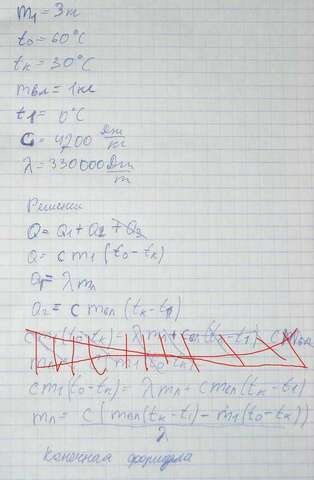 m₁ = 3 кг
t₀ = 60°C
tк = 30°C
mвл = 1 кг
t₁ = 0°C
C = 4200 Дж/кг
λ = 330000 Дж/т
Решение
Q = Q₁ + Q₂ + Q₃
Q = cm₁(t₀ - tк)
Q₁ = λ mл
Q₂ = c mвл (tк - t₁)
cm₁(t₀ - tк) = λ mл + cmвл(tк - t₁)
mл = c(mвл(tк - t₁) - m₁(t₀ - tк))
λ
Конечная формула